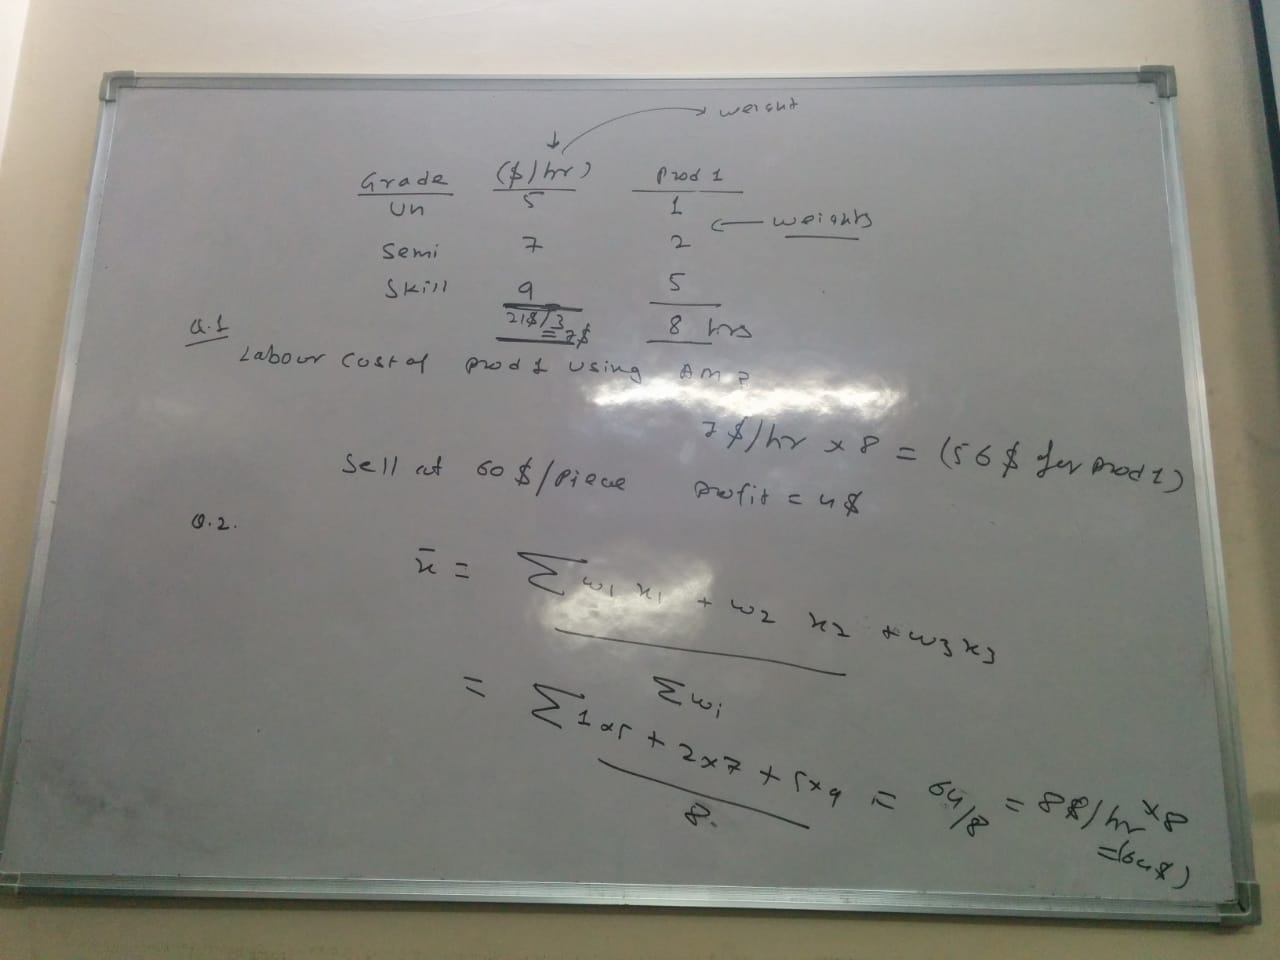 weight
Grade ($/hr) Prod 1
Un 5 1
← weights
Semi 7 2
Skill 9 5
21$/3 8 hrs
= 7$
Q.1
Labour cost of prod 1 using AM?
7$/hr x 8 = (56$ for prod 1)
Sell at 60$/Piece profit = 4$
Q.2.
x̄ = Σ w1 x1 + w2 x2 + w3 x3
Σwi
= Σ 1x5 + 2x7 + 5x9 = 64/8 = 8$/hr x8
8. =(64$)